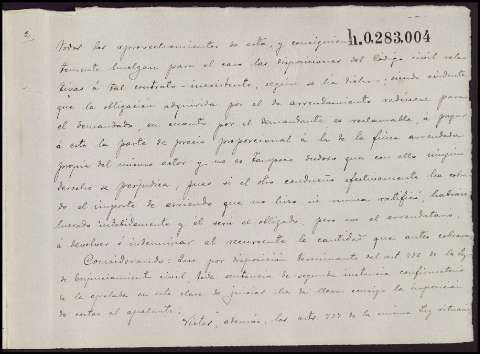 2
h.0.283,004
todos los aprovechamientos de esta, y consiguiente
temente huelgan para el caso las disposiciones del Código civil rela
tivas á tal contrato inexistente, según se ha dicho; siendo evidente
que la obligación adquirida por el de arrendamiento redúcese para
el demandado, en cuanto por el demandante es reclamable, á pagar
á este la parte de precio proporcional á la de la finca arrendada
propia del mismo actor y no es tampoco dudoso que con ello ningún
derecho se perjudica, pues si el otro condueño efectivamente ha cobra
do el importe de arriendo que no hizo ni nunca ratificó, habrá
lucrado indebidamente y él será el obligado, pero no el arrendatario,
á devolver ó indemnizar al recurrente la cantidad que antes cobrara
Considerando: Que por disposición terminante del art 736 de la Ley
de Enjuiciamiento civil, toda sentencia de segunda instancia confirmatoria
de la apelada en esta clase de juicios ha de llevar consigo la imposición
de costas al apelante.
Vistos, además, los arts 737 de la misma Ley